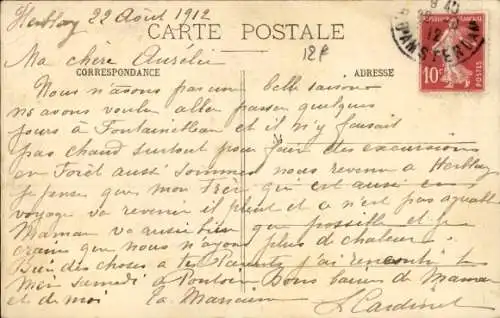 Herblay 22 Août 1912
CARTE POSTALE
12f
Ma chère Aurélie
CORRESPONDANCE
ADRESSE
RÉPUBLIQUE FRANÇAISE
10c
POSTES
Nous n'avons pas eu belle saison
nous avons voulu aller passer quelques
jours à Fontainebleau et il n'y faisait
pas chaud surtout pour faire des excursions
en Forêt aussi sommes nous revenu à Herblay
je pense que mon frère qui est aussi en
voyage va revenir il pleut et ce n'est pas
Maman va aussi bien que possible et je
crains que nous n'ayons plus de chaleur.
Bien des choses à tes Parents j'ai rencontré
samedi à Pontoise Bons baisers de Maman
et de moi